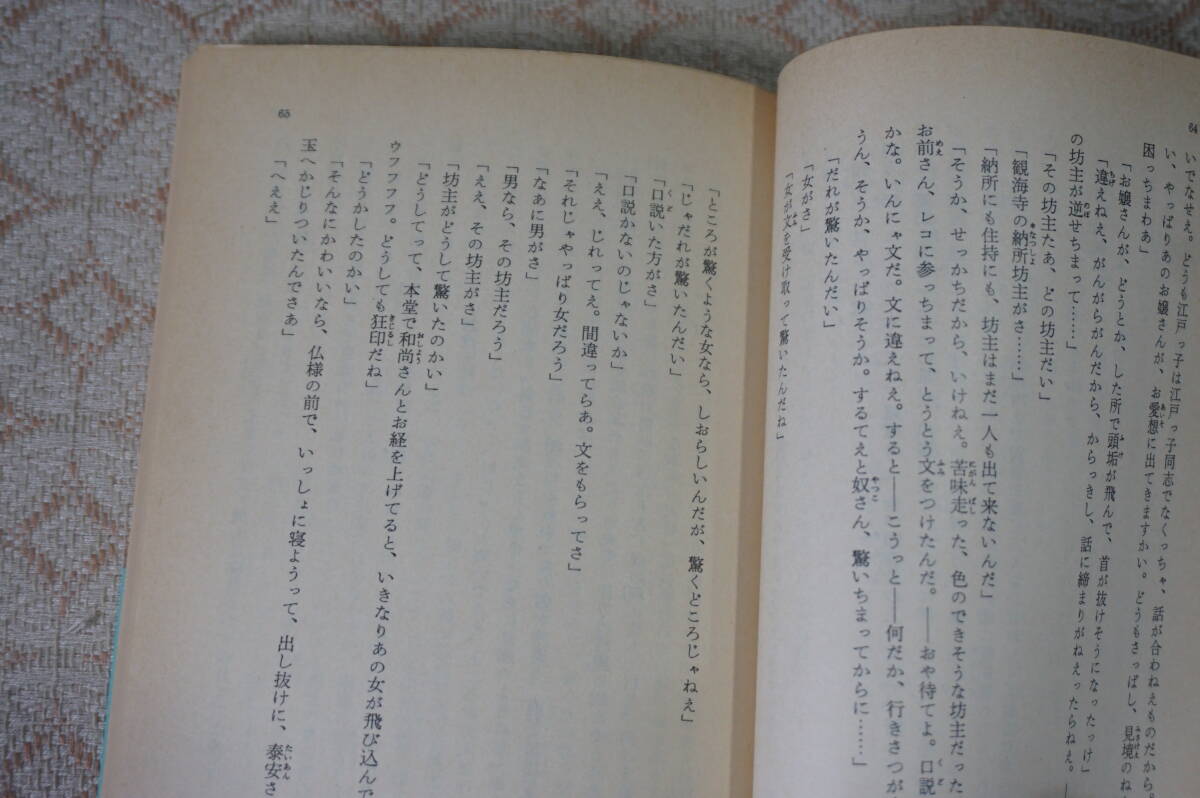 64
いでなせえ。どうも江戸っ子は江戸っ子同志でなくっちゃ、話が合わねえものだから。
い、やっぱりあのお嬢さんが、お愛想に出てきますかい。どうもさっぱし、見境のね
困っちまわあ」
「お嬢さんが、どうとか、した所で頭垢が飛んで、首が抜けそうになったっけ」
「違えねえ、がんがらがんだから、からっきし、話に締まりがねえったらねえ。―
の坊主が逆せちまって……」
「その坊主たあ、どの坊主だい」
「観海寺の納所坊主がさ……」
「納所にも住持にも、坊主はまだ一人も出て来ないんだ」
「そうか、せっかちだから、いけねえ。苦味走った、色のできそうな坊主だった
お前さん、レコに参っちまって、とうとう文をつけたんだ。――おや待てよ。口説
かな。いんにゃ文だ。文に違えねえ。すると――こうっと――何だか、行きさつが
うん、そうか、やっぱりそうか。するてえと奴さん、驚いちまってからに……」
「だれが驚いたんだい」
「女がさ」
「女が文を受け取って驚いたんだね」
65
「ところが驚くような女なら、しおらしいんだが、驚くどころじゃねえ」
「じゃだれが驚いたんだい」
「口説いた方がさ」
「口説かないのじゃないか」
「ええ、じれってえ。間違ってらあ。文をもらってさ」
「それじゃやっぱり女だろう」
「なあに男がさ」
「男なら、その坊主だろう」
「ええ、その坊主がさ」
「坊主がどうして驚いたのかい」
「どうしてって、本堂で和尚さんとお経を上げてると、いきなりあの女が飛び込んで
ウフフフフ。どうしても狂印だね」
「どうかしたのかい」
「そんなにかわいいなら、仏様の前で、いっしょに寝ようって、出し抜けに、泰安さ
玉へかじりついたんでさあ」
「へええ」